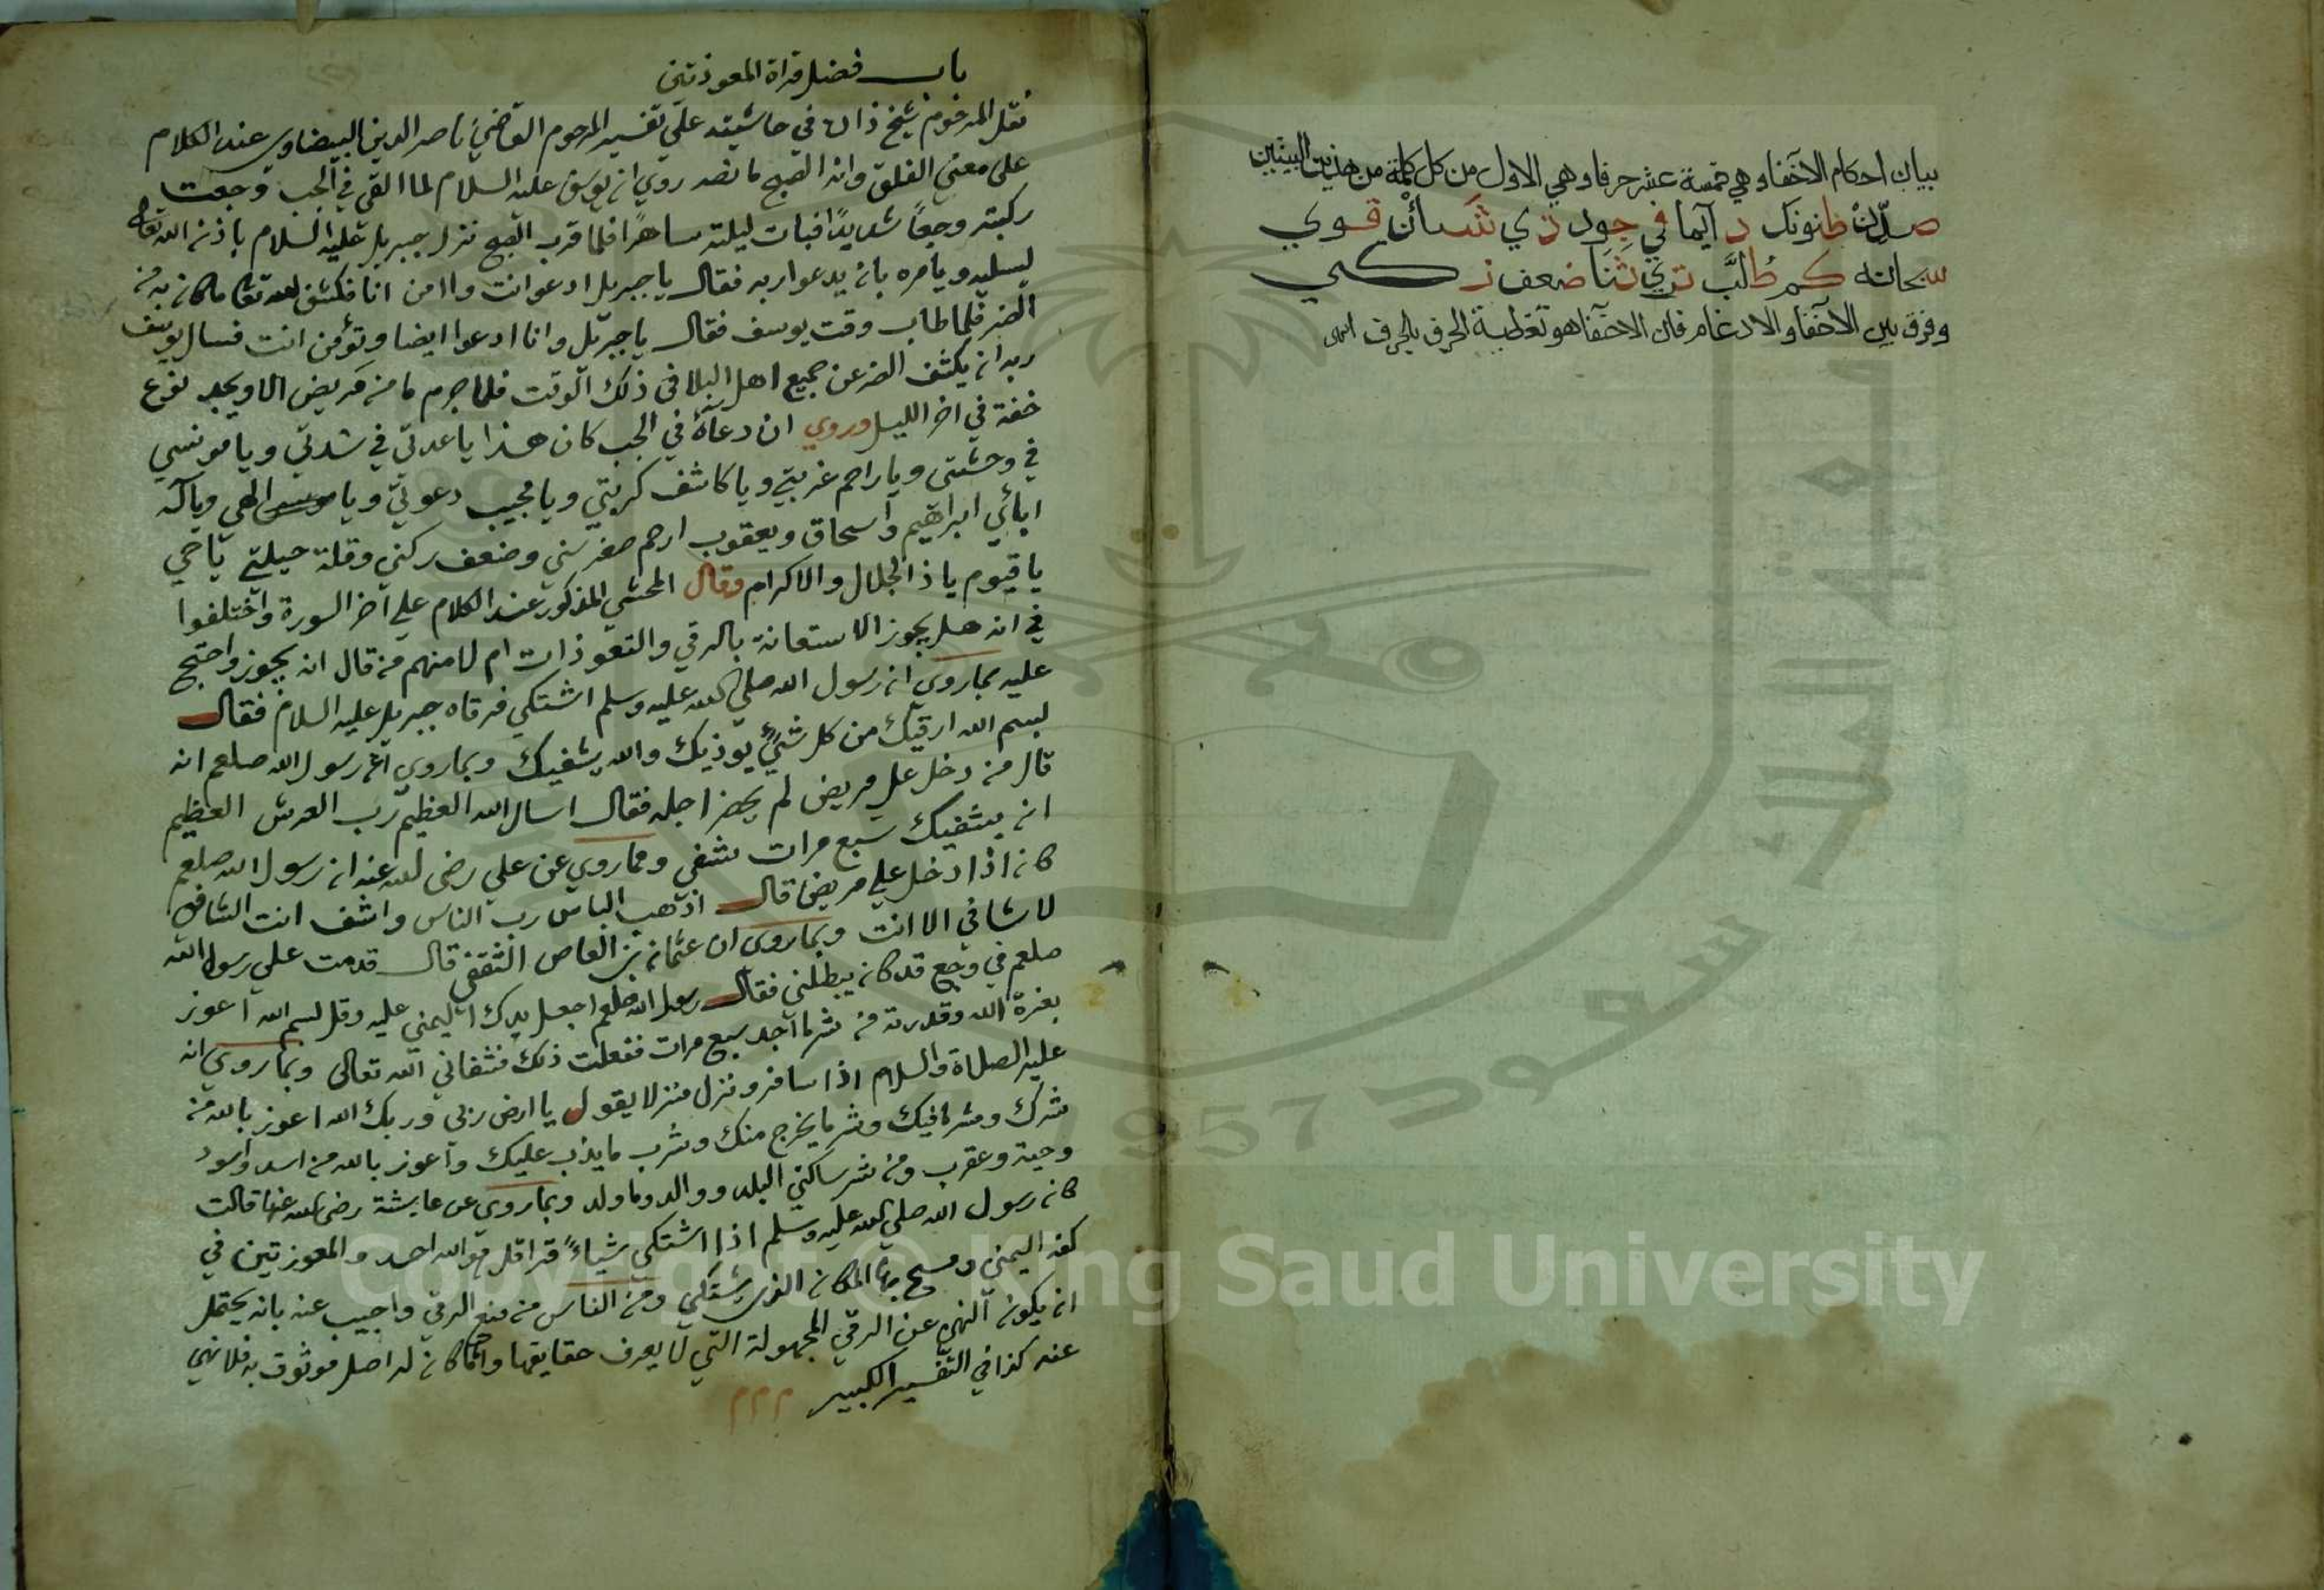 بيان احكام الاخفا وهي خمسة عشر حرفا وهي الاول من كل كلمة من هذين البيتين
صلن ظنونك دآيما في جود ذي شسائن قوي
سبحانه كم طالب تري ثنا ضعف زكي
وفرق بين الاخفا والادغام فان الاخفا هو تغطية الحرف بالحرف
باب فضل قراة المعوذتين
نقل المرحوم شيخ ذاده في حاشيته علي تفسير المرحوم القاضي ناصر الدين البيضاوي عند الكلام
على معني الفلق وانه الصبح ما نصه روي ان يوسف عليه السلام لما القي في الجب وجعت
ركبته وجعا شديدا فبات ليلته ساهرا فلما قرب الصبح نزل جبريل عليه السلام باذن الله تعالى
يسليه ويامره بان يدعوا ربه فقال يا جبريل ادعو انت واامن انا فكشف الله تعا ما كان به من
الضر فلما طاب وقت يوسف فقال يا جبريل وانا ادعوا ايضا وتؤمن انت فسال يوسف
ربه ان يكشف الضر عن جميع اهل البلا في ذلك الوقت فلا جرم ما من مريض الا ويجد نوع
خفة في اخر الليل وروي ان دعاه في الجب كان هذا يا عدتي في شدتي ويا مونسي
في وحشتي ويا راحم غربتي ويا كاشف كربتي ويا مجيب دعوتي ويا الهي ويا اله
ابائي ابراهيم واسحاق ويعقوب ارحم صغر سني وضعف ركني وقلة حيلتي يا حي
يا قيوم يا ذا الجلال والاكرام وقال المحشي المذكور عند الكلام علي آخر السورة واختلفوا
في انه هل يجوز الاستعانة بالرقي والتعوذات ام لا منهم من قال انه يجوز واحتج
عليه بما روي ان رسول الله صلى الله عليه وسلم اشتكي فرقاه جبريل عليه السلام فقال
بسم الله ارقيك من كل شيء يوذيك والله يشفيك وبما روي عن رسول الله صلعم انه
قال من دخل علي مريض لم يحضر اجله فقال اسال الله العظيم رب العرش العظيم
ان يشفيك سبع مرات شفي ومما روي عن علي رضى الله عنه ان رسول الله صلعم
كان اذا دخل علي مريض قال اذهب الباس رب الناس واشف انت الشافي
لا شافي الا انت وبما روى ان عثمان بن العاص الثقفي قال قدمت علي رسول الله
صلعم في وجع قد كان يبطلني فقال رسول الله صلعم اجعل يدك اليمني عليه وقل بسم الله اعوذ
بعزة الله وقدرته من شر ما اجد سبع مرات ففعلت ذلك فشفاني الله تعالى وبما روي انه
عليه الصلاة والسلام اذا سافر ونزل منزلا يقول يا ارض ربي وربك الله اعوذ بالله من
شرك وشر ما فيك وشر ما يخرج منك وشر ما يدب عليك واعوذ بالله من اسد واسود
وحية وعقرب ومن شر ساكني البلد ووالد وما ولد وبما روي عن عايشة رضى الله عنها قالت
كان رسول الله صلى الله عليه وسلم اذا اشتكي شياء قرا قل هو الله احد والمعوذتين في
كفه اليمني ومسح بها المكان الذي يشتكي ومن الناس من منع الرقي واجيب عنه بانه يحتمل
ان يكون النهي عن الرقي المجهولة التي لا يعرف حقايقها واما ما كان له اصل موثوق به فلا نهي
عنه كذا في التفسير الكبير م م م
Copyright © King Saud University
1957